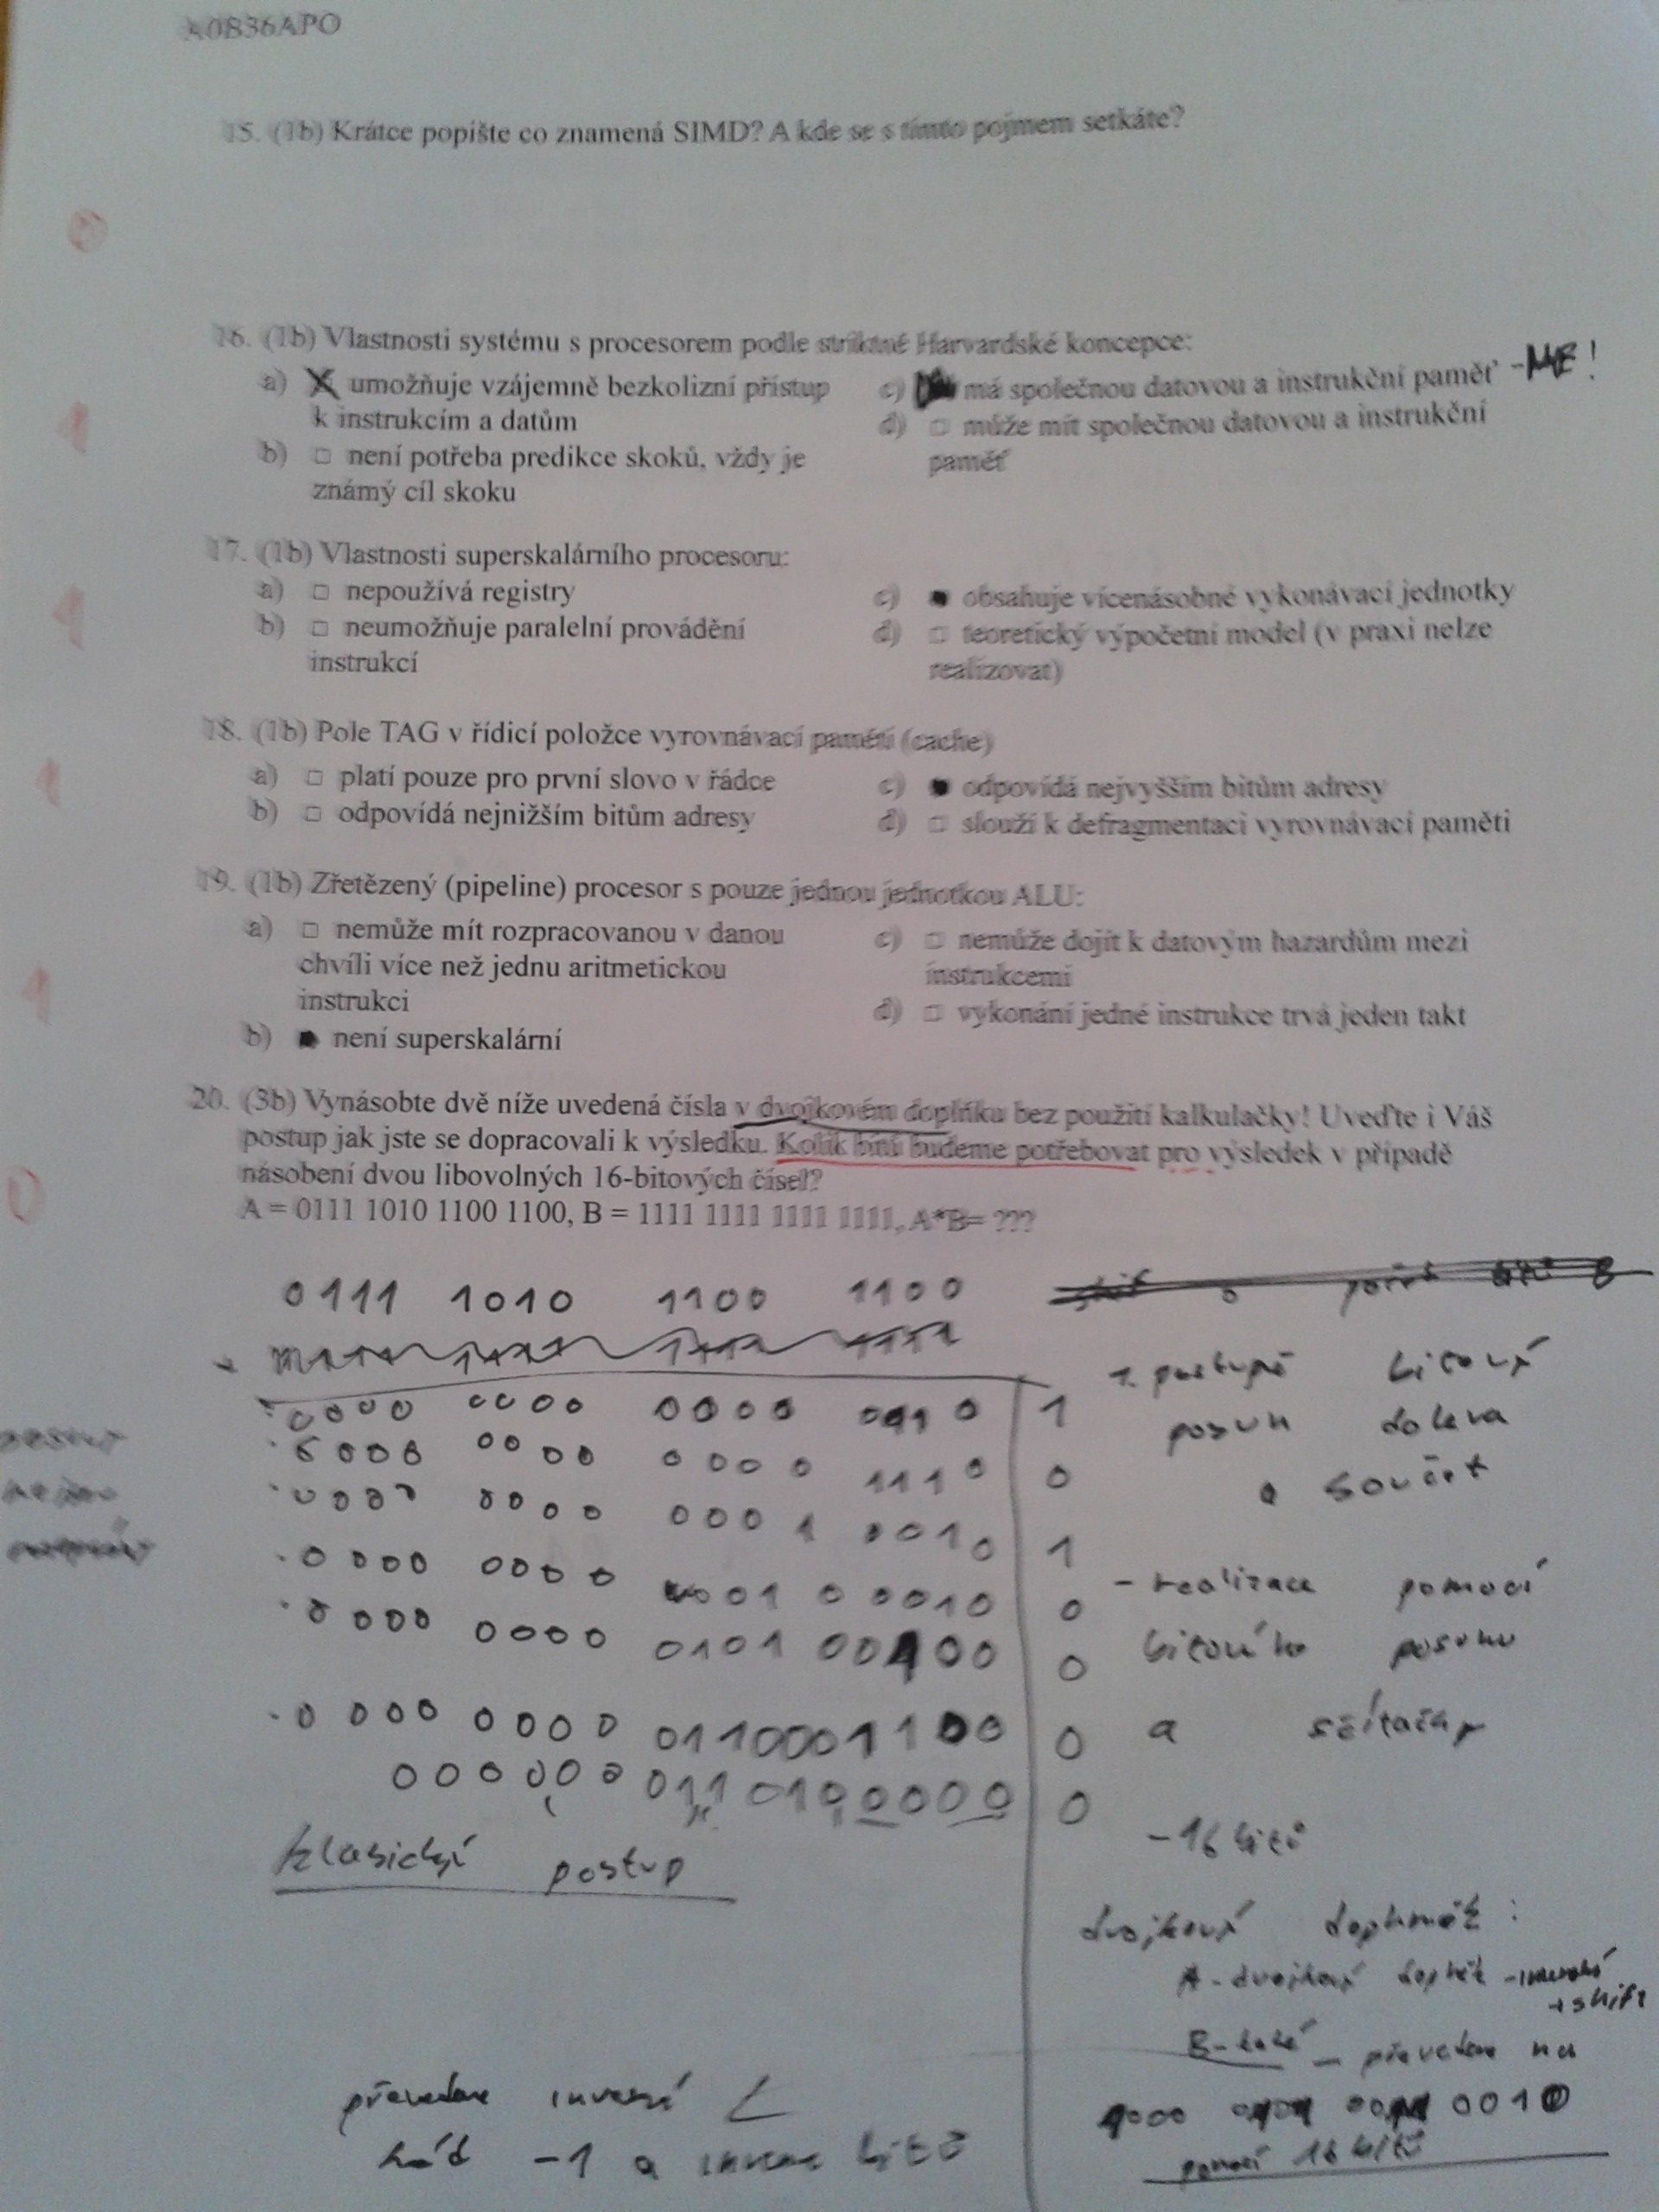 A0B36APO
15. (1b) Krátce popište co znamená SIMD? A kde se s tímto pojmem setkáte?
0
16. (1b) Vlastnosti systému s procesorem podle striktně Harvardské koncepce:
a) umožňuje vzájemně bezkolizní přístup
k instrukcím a datům
b) není potřeba predikce skoků, vždy je
známý cíl skoku
c) má společnou datovou a instrukční paměť - NE!
d) může mít společnou datovou a instrukční
paměť
1
17. (1b) Vlastnosti superskalárního procesoru:
a) nepoužívá registry
b) neumožňuje paralelní provádění
instrukcí
c) obsahuje vícenásobné vykonávací jednotky
d) teoretický výpočetní model (v praxi nelze
realizovat)
1
18. (1b) Pole TAG v řídicí položce vyrovnávací paměti (cache)
a) platí pouze pro první slovo v řádce
b) odpovídá nejnižším bitům adresy
c) odpovídá nejvyšším bitům adresy
d) slouží k defragmentaci vyrovnávací paměti
1
19. (1b) Zřetězený (pipeline) procesor s pouze jednou jednotkou ALU:
a) nemůže mít rozpracovanou v danou
chvíli více než jednu aritmetickou
instrukci
b) není superskalární
c) nemůže dojít k datovým hazardům mezi
instrukcemi
d) vykonání jedné instrukce trvá jeden takt
1
20. (3b) Vynásobte dvě níže uvedená čísla v dvojkovém doplňku bez použití kalkulačky! Uveďte i Váš
postup jak jste se dopracovali k výsledku. Kolik bitů budeme potřebovat pro výsledek v případě
násobení dvou libovolných 16-bitových čísel?
A = 0111 1010 1100 1100, B = 1111 1111 1111 1111, A*B= ???
0
0111 1010 1100 1100
0000 0000 0000 1
0000 0000 0000 1110 0
0000 0000 0001 0010 1
0000 0000 0010 0
0000 0000 0101 00 00 0
0000 0000 0110001100 0
000000 0110100000 0
klasický postup
1. postupně bitový
posun doleva
a součet
- realizace pomocí
bitového posunu
a sčítačky
- 16 bitů
dvojkový doplněk:
A - dvojkový doplněk - inverzní
+ shift
B - také - převedem na
0010
pomocí 16 bitů
převedem inverzní
kód -1 a inverze bitů